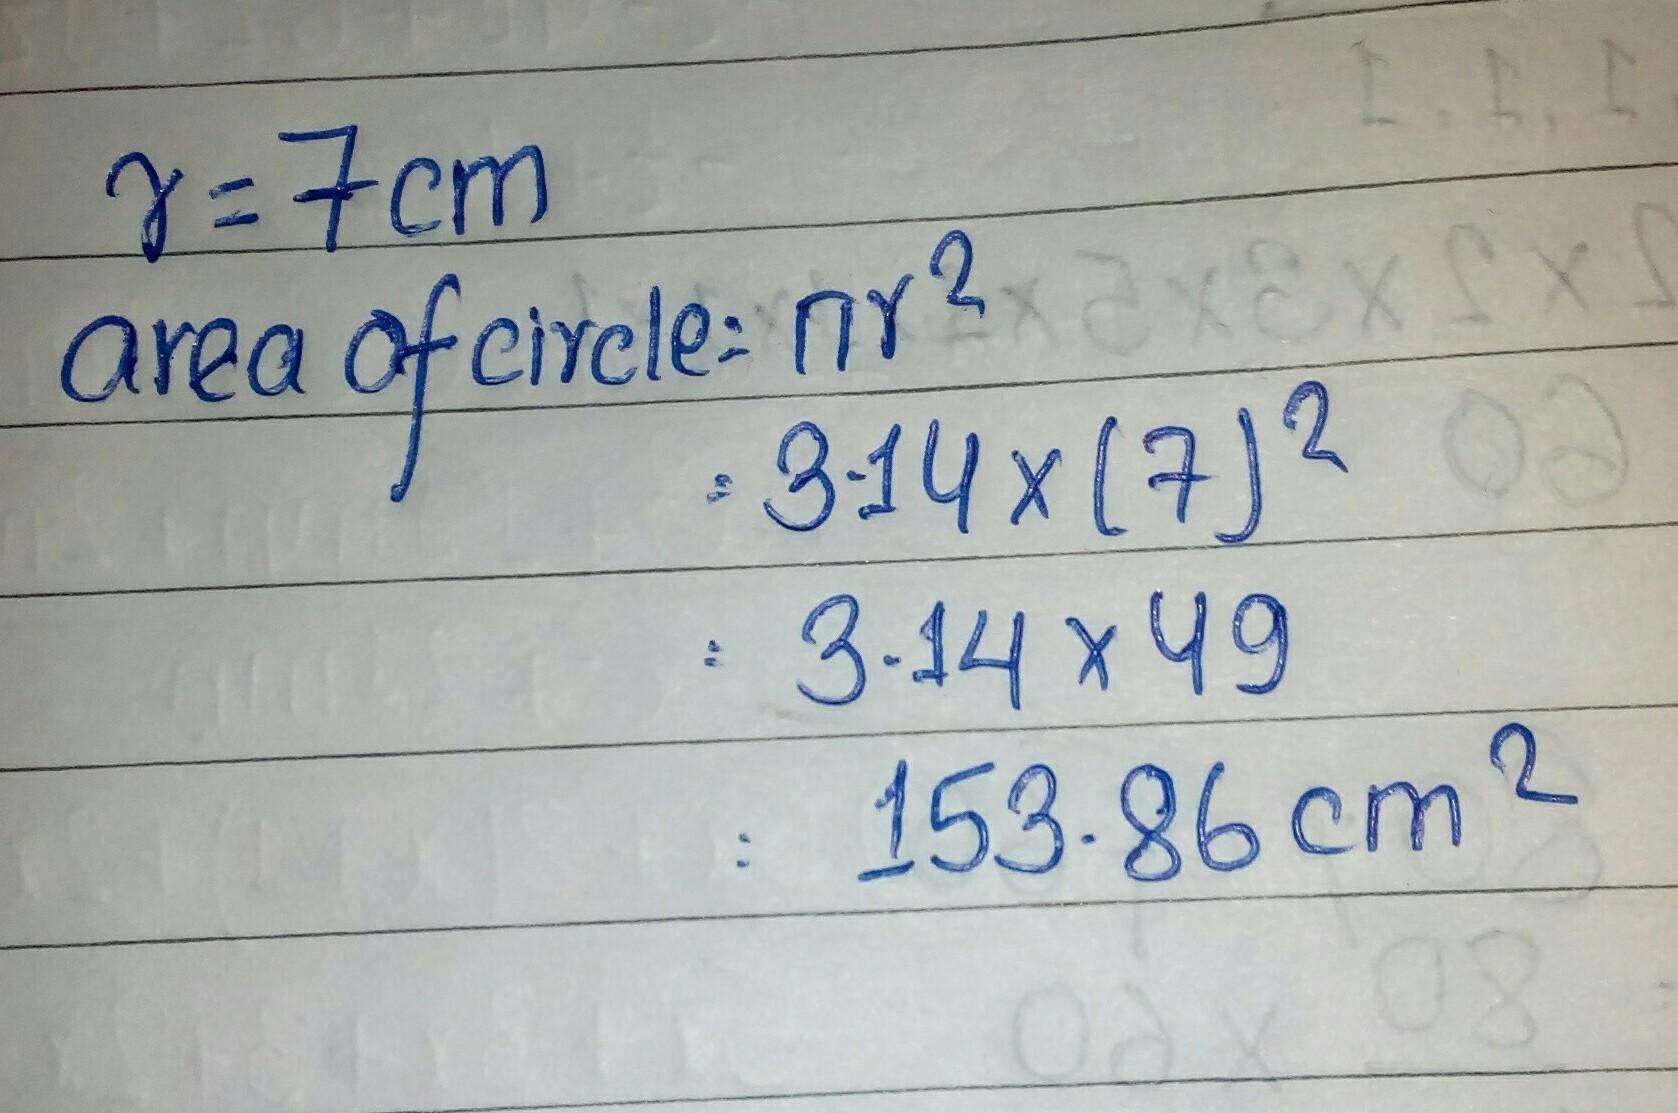 r = 7cm
area of circle = πr²
= 3.14 x (7)²
= 3.14 x 49
= 153.86 cm²